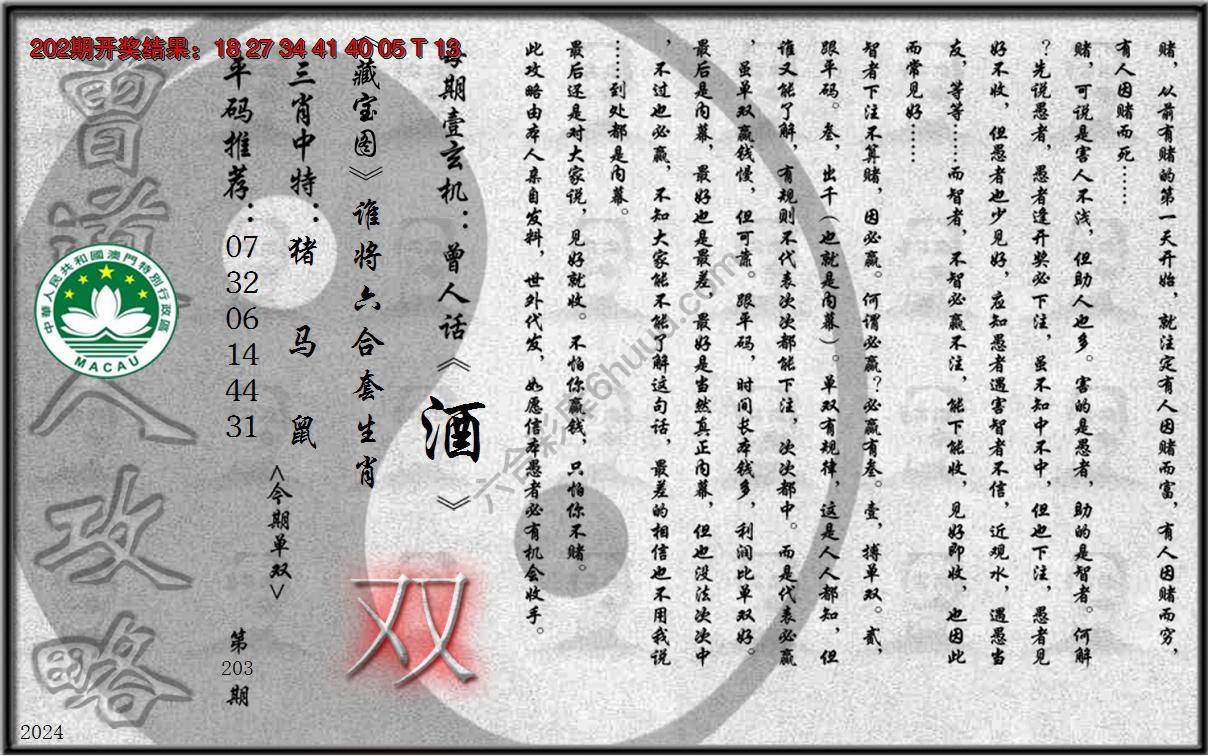 202期开奖结果：18 27 34 41 40 05 T 13
赌，从前有赌的第一天开始，就注定有人因赌而富，有人因赌而穷，
有人因赌而死……
赌，可说是害人不浅，但助人也多。害的是愚者，助的是智者。何解
？先说愚者，愚者逢开奖必下注，虽不知中不中，但也下注，愚者见
好不收，但愚者也少见好，应知愚者遇害智者不信，近观水，遇愚当
友，等等……而智者，不智必赢不注，能下能收，见好即收，也因此
而常见好……
智者下注不算赌，因必赢。何谓必赢？必赢有叁。壹，搏单双。贰，
跟平码。叁，出千（也就是内幕）。单双有规律，这是人人都知，但
谁又能了解，有规则不代表次次都能下注，次次都中。而是代表必赢
，虽单双赢钱慢，但可靠。跟平码，时间长本钱多，利润比单双好。
最后是内幕，最好也是最差。最好是当然真正内幕，但也没法次次中
，不过也必赢，不知大家能不能了解这句话，最差的相信也不用我说
……到处都是内幕。
最后还是对大家说，见好就收。不怕你赢钱，只怕你不赌。
此攻略由本人亲自发料，世外代发，如愿信本愚者必有机会收手。
每期壹玄机：曾人话《酒》
《藏宝图》谁将六合套生肖
双
三肖中特：猪 马 鼠
<今期单双>
平码推荐：
07
32
06
14
44
31
第
203
期
曾道人攻略
中華人民共和國澳門特別行政區
MACAU
六合彩库6huuu.com
2024